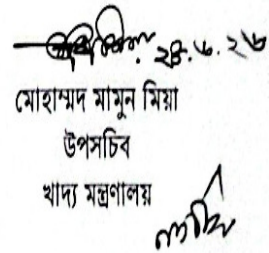 ২৪.৬.২৬
মোহাম্মদ মামুন মিয়া
উপসচিব
খাদ্য মন্ত্রণালয়